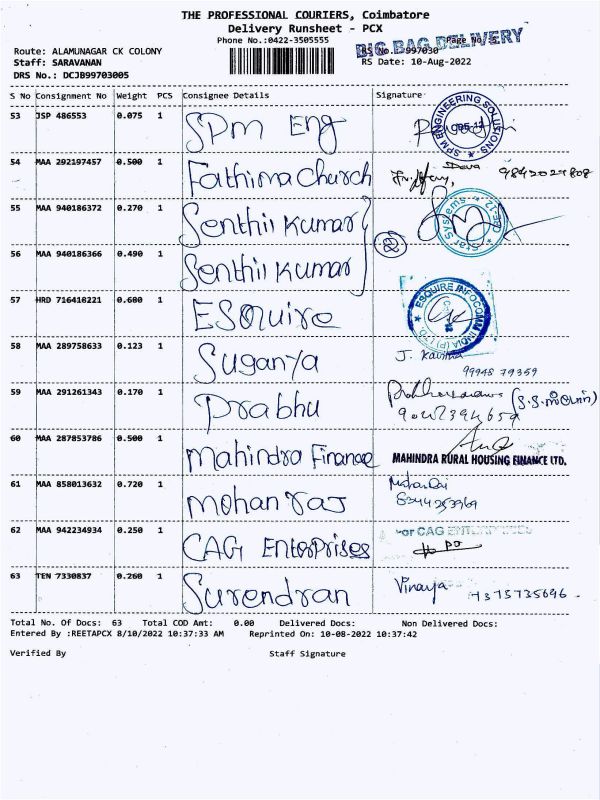 THE PROFESSIONAL COURIERS, Coimbatore
Delivery Runsheet - PCX
Phone No.:0422-3505555
BIG BAG DELIVERY
Route: ALAMUNAGAR CK COLONY
Staff: SARAVANAN
RS Date: 10-Aug-2022
DRS No.: DCJB99703005
S No Consignment No Weight PCS Consignee Details Signature
53 JSP 486553 0.075 1 SPM Eng
SPM ENGINEERING SOLUTIONS
54 MAA 292197457 0.500 1 Fathima Church
55 MAA 940186372 0.270 1 Senthil Kumar
Star Systems
56 MAA 940186366 0.490 1 Senthil Kumar
57 HRD 716418221 0.600 1 ESQuire
ESQUIRE INFOCOMM INDIA (P) LTD.
58 MAA 289758633 0.123 1 Suganya J. Kavitha
99948 79359
59 MAA 291261343 0.170 1 Prabhu
60 MAA 287853786 0.500 1 Mahindra Finance
MAHINDRA RURAL HOUSING FINANCE LTD.
61 MAA 858013632 0.720 1 Mohan raj
62 MAA 942234934 0.250 1 CAG Enterprises For CAG ENTERPRISES
63 TEN 7330837 0.260 1 Surendran Vinaya 7373735696
Total No. Of Docs: 63 Total COD Amt: 0.00 Delivered Docs: Non Delivered Docs:
Entered By :REETAPCX 8/10/2022 10:37:33 AM Reprinted On: 10-08-2022 10:37:42
Verified By Staff Signature